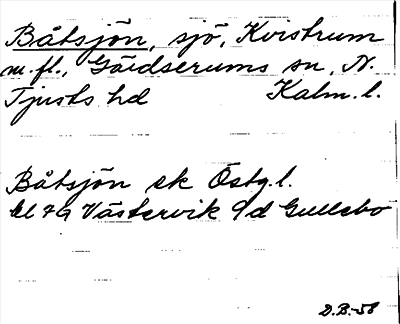 Båtsjön, sjö, Kvistrum
m.fl., Gärdserums sn, N.
Tjusts hd Kalm.l.
Båtsjön ek Östg.l.
bl 79 Västervik 9d Gullebo
D.B.-58